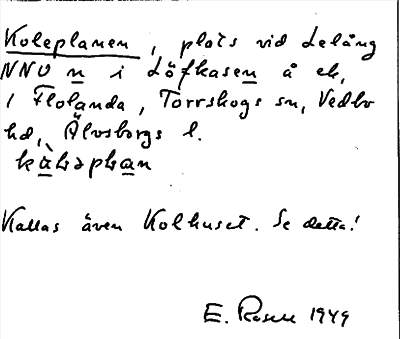 Koleplanen, plats vid Lelång
NNO n i Löfkasen å ek,
1 Flolanda, Torrskogs sn, Vedbo
hd, Älvsborgs l.
kàləplan
Kallas även Kolhuset. Se detta!
E. Rosell 1949